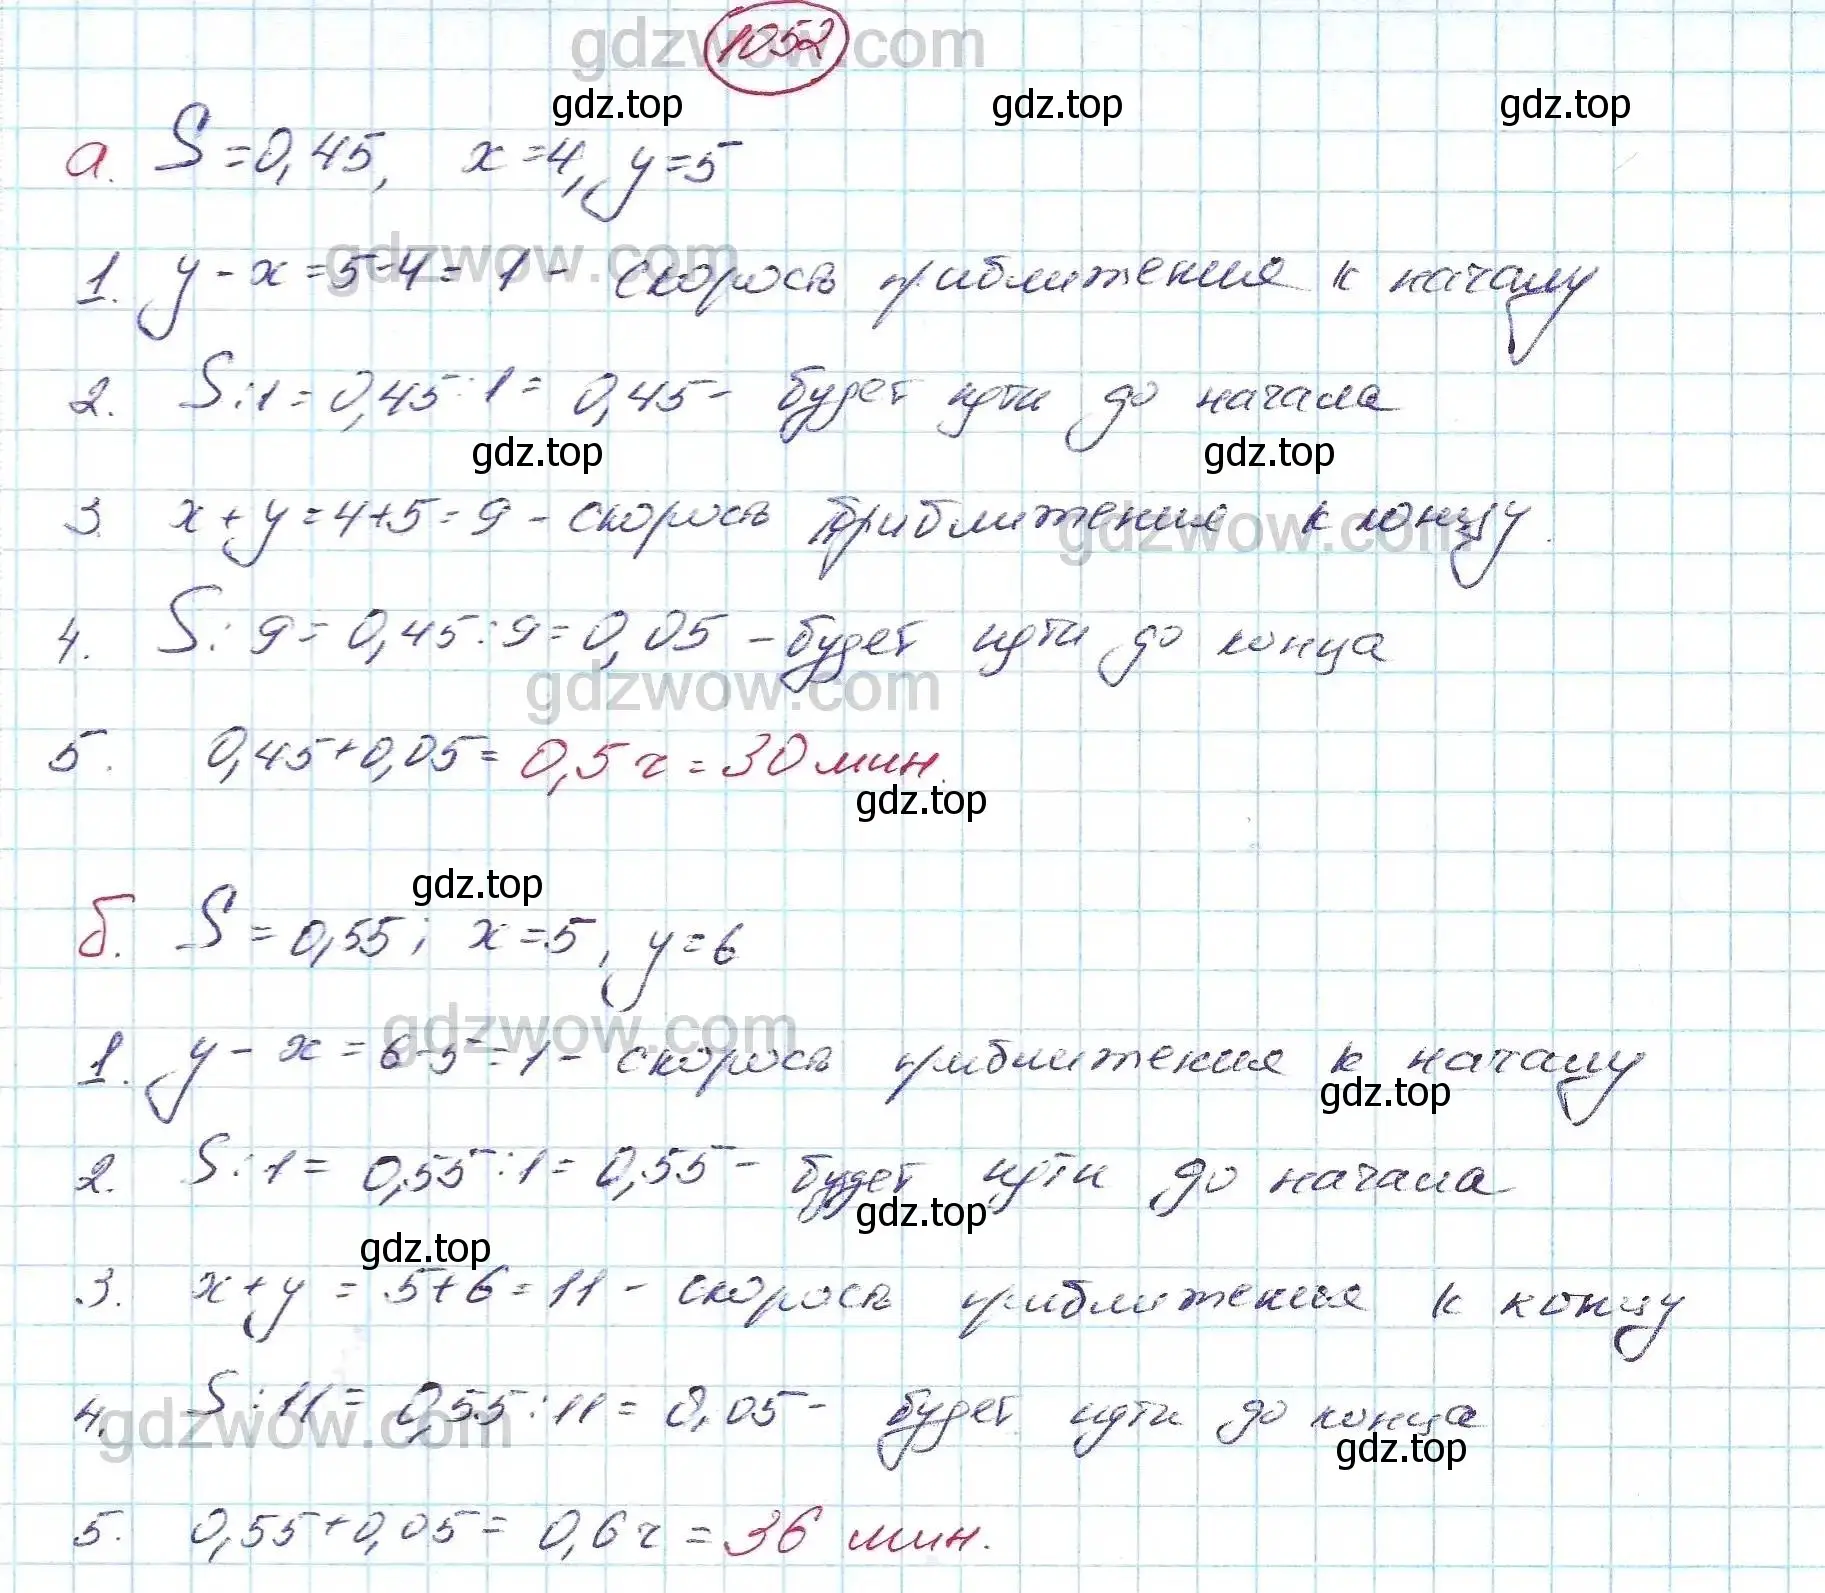 gdzwow.com
1052
gdz.top gdz.top gdz.top
а. S = 0,45, x = 4, y = 5
gdzwow.com
1. y - x = 5 - 4 = 1 - скорость приближения к началу
2. S : 1 = 0,45 : 1 = 0,45 - будет идти до начала
gdz.top gdz.top
3. x + y = 4 + 5 = 9 - скорость приближения к концу.
gdzwow.com
4. S : 9 = 0,45 : 9 = 0,05 - будет идти до конца
gdzwow.com
5. 0,45 + 0,05 = 0,5 ч = 30 мин.
gdz.top
gdz.top
б. S = 0,55; x = 5, y = 6
gdzwow.com
1. y - x = 6 - 5 = 1 - скорость приближения к началу
gdz.top
2. S : 1 = 0,55 : 1 = 0,55 - будет идти до начала
gdz.top
gdz.top
3. x + y = 5 + 6 = 11 - скорость приближения к концу
4. S : 11 = 0,55 : 11 = 0,05 - будет идти до конца
gdzwow.com
gdz.top
5. 0,55 + 0,05 = 0,6 ч = 36 мин.